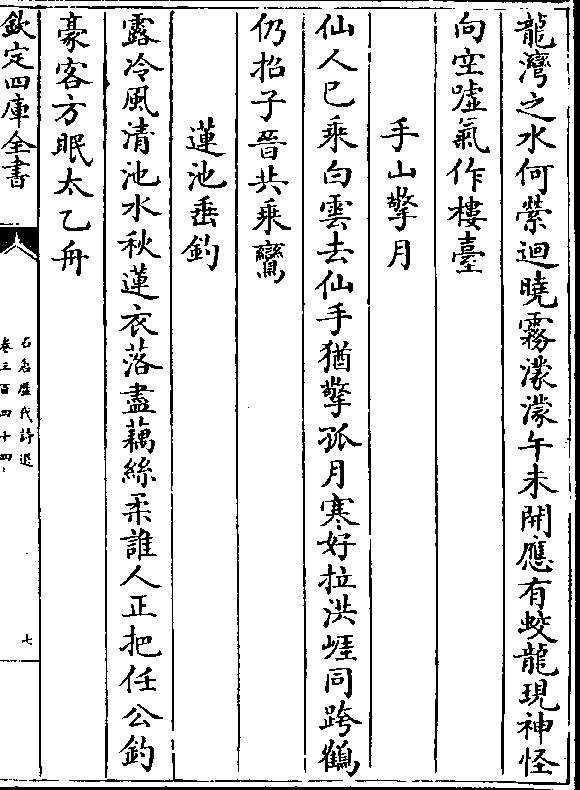 龍灣之水何縈迴曉霧濛濛午未開應有蛟龍現神怪
向空噓氣作樓臺
手山擎月
仙人已乘白雲去仙手猶擎孤月寒好拉洪崕同跨鶴
仍招子晉共乘鸞
蓮池垂釣
露冷風清池水秋蓮衣落盡藕絲柔誰人正把任公釣
豪客方眠太乙舟
欽定四庫全書
石倉歷代詩選
卷三百四十四
七